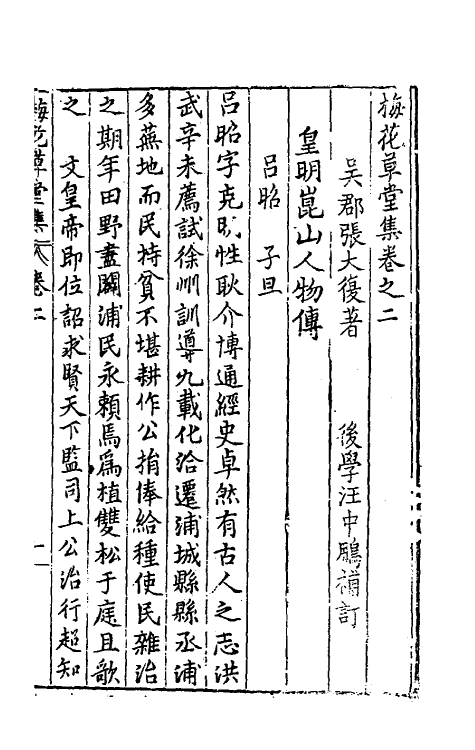 梅花草堂集卷之二
吳郡張大復著　後學汪中鵬補訂
皇明崑山人物傳
呂昭　子旦
呂昭字克明性耿介博通經史卓然有古人之志洪
武辛未薦試徐州訓導九載化洽遷浦城縣縣丞浦
多蕪地而民持貧不堪耕作公捐俸給種使民雜治
之期年田野盡闢浦民永賴焉爲植雙松于庭且歌
之　文皇帝即位詔求賢天下監司上公治行超知
梅花草堂集　卷二　一